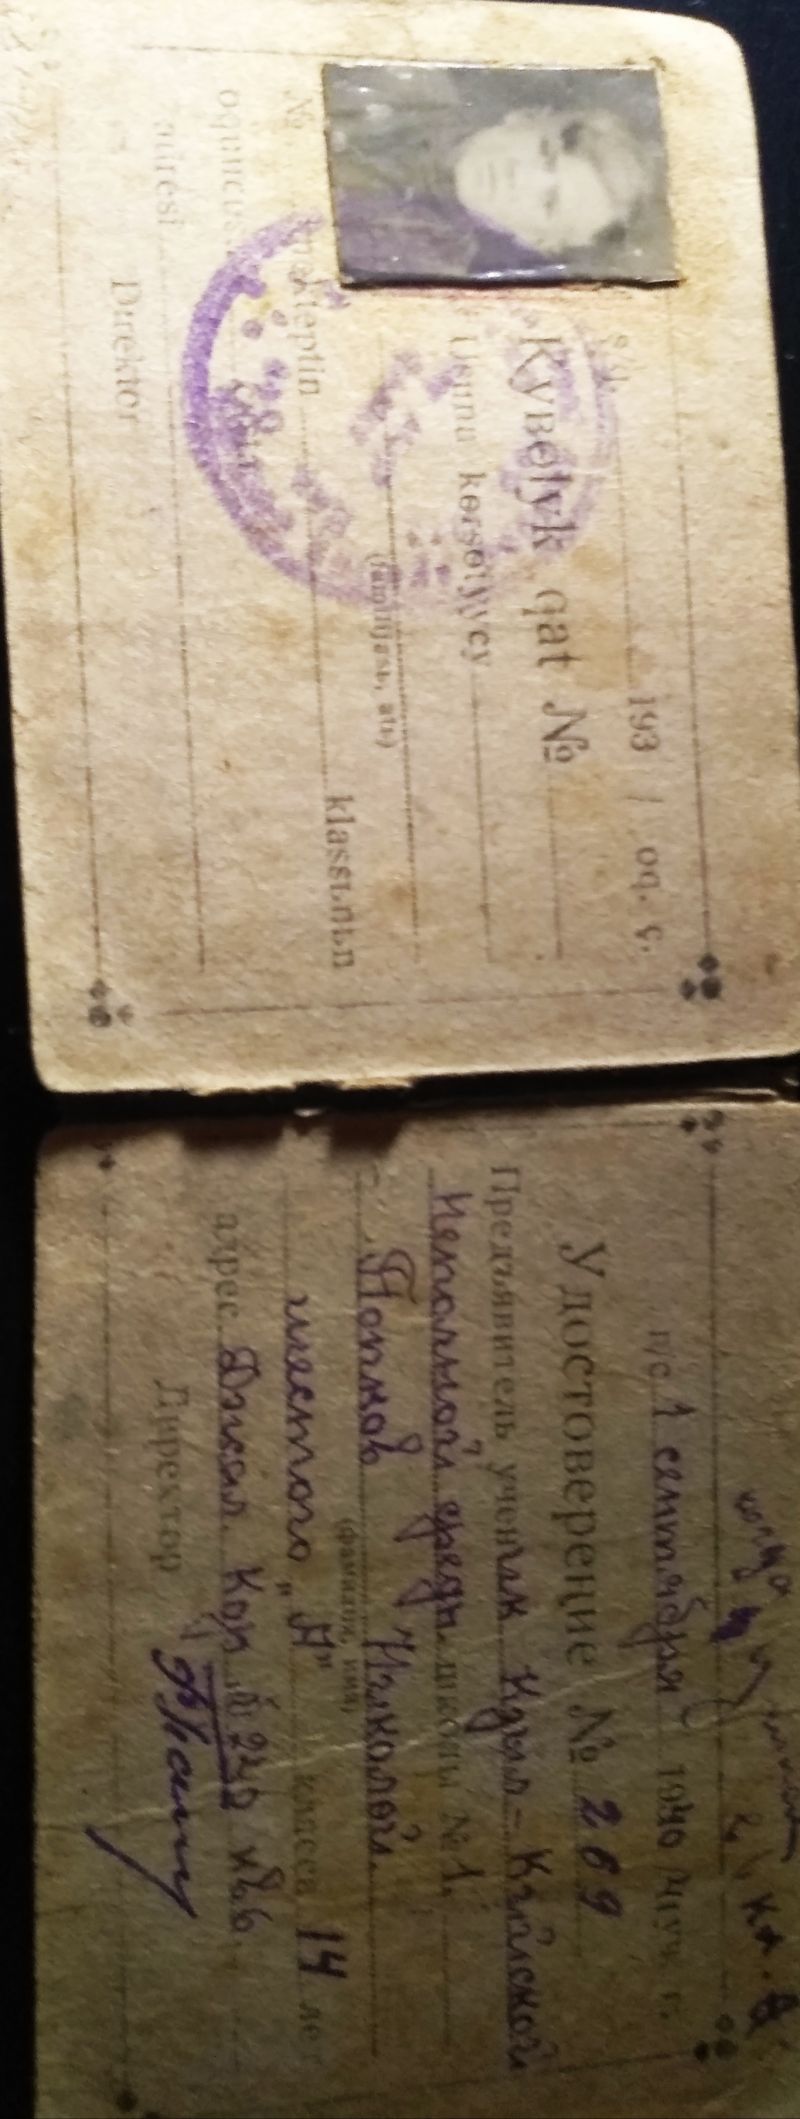 193 / oq. ç.
Kyвelyk qat №
Usьnu kɵrsetyycy
(familijasь, atь)
№ mekteptin klassьnьn
oquucu
adiresi
Direktor
п/с 1 сентября 1940
Удостоверение № 209
Предъявитель ученик Кзыл-Кгийской
Неполной средн. школы № 1.
Попков Николай.
(фамилия, имя)
шестого „А" класса 14 лет
адрес Джал. Кор
Директор